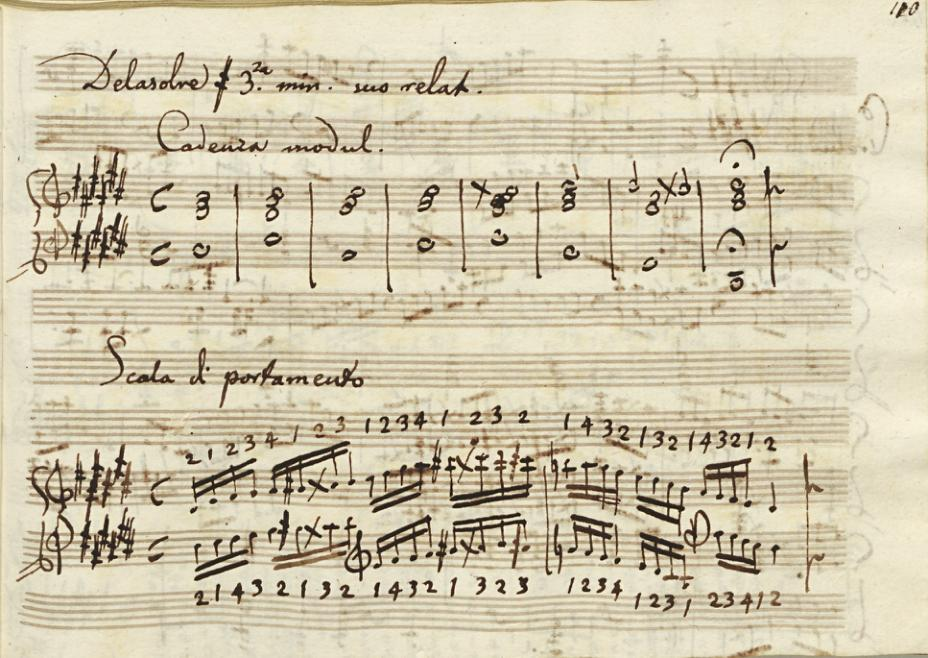 110
Delasolre # 3.ª min. suo relat.
Cadenza modul.
Scala di portamento
2 1 2 3 4 1 2 3 1 2 3 4 1 2 3 2 1 4 3 2 1 3 2 1 4 3 2 1 2
2 1 4 3 2 1 3 2 1 4 3 2 1 3 2 3 1 2 3 4 1 2 3 1 2 3 4 1 2